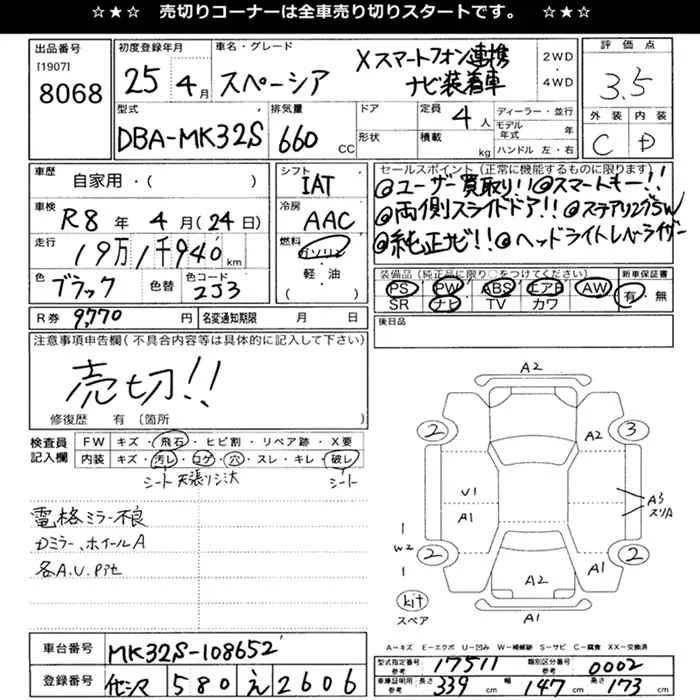 ☆★☆ 売切りコーナーは全車売り切りスタートです。 ☆★☆
出品番号 [1907] 8068
初度登録年月 25年 4月
車名・グレード スペーシア Xスマートフォン連携ナビ装着車
2WD・4WD
評価点 3.5
外装 C 内装 D
型式 DBA-MK32S
排気量 660 CC
ドア 形状
定員 4人 積載 kg
ディーラー・並行
モデル年式 年
ハンドル 左・右
車歴 自家用・( )
車検 R8年 4月(24日)
走行 19万1千940km
色 ブラック 色替 色コード ZJ3
シフト IAT
冷房 AAC
燃料 ガソリン・軽・油 ( )
セールスポイント(正常に機能するものに限ります)
@ユーザー買取り!! @スマートキー!!
@両側スライドドア!! @ステアリングSW
@純正ナビ!! @ヘッドライトレベライザー
装備品(純正品に限り○をつけてください) 新車保証書
PS PW ABS エアB AW 有・無
SR ナビ TV カワ
R券 9,770円 名変通知期限 月 日
後日品
注意事項申告欄(不具合内容等は具体的に記入して下さい)
売切!!
修復歴 有 (箇所 )
検査員記入欄
FW キズ・飛石・ヒビ割・リペア跡・X要
内装 キズ・汚レ・コゲ・穴・スレ・キレ・破レ
シート 天張りシミ大 シート
電格ミラー不良
Dミラー、ホイールA
各A.U.Pitせ
A2
2 3
A2
U1
A1
A3
スリA
W2
2 2
A2 A1
kit
スペア A1
A=キズ E=エクボ U=凹み W=補修跡 S=サビ C=腐食 XX=交換済
車台番号 MK32S-108652
登録番号 580 え 2606
型式指定番号 参考 17511 類別区分番号 参考 0002
車庫証明用 参考 長さ 339cm 幅 147cm 高さ 173cm